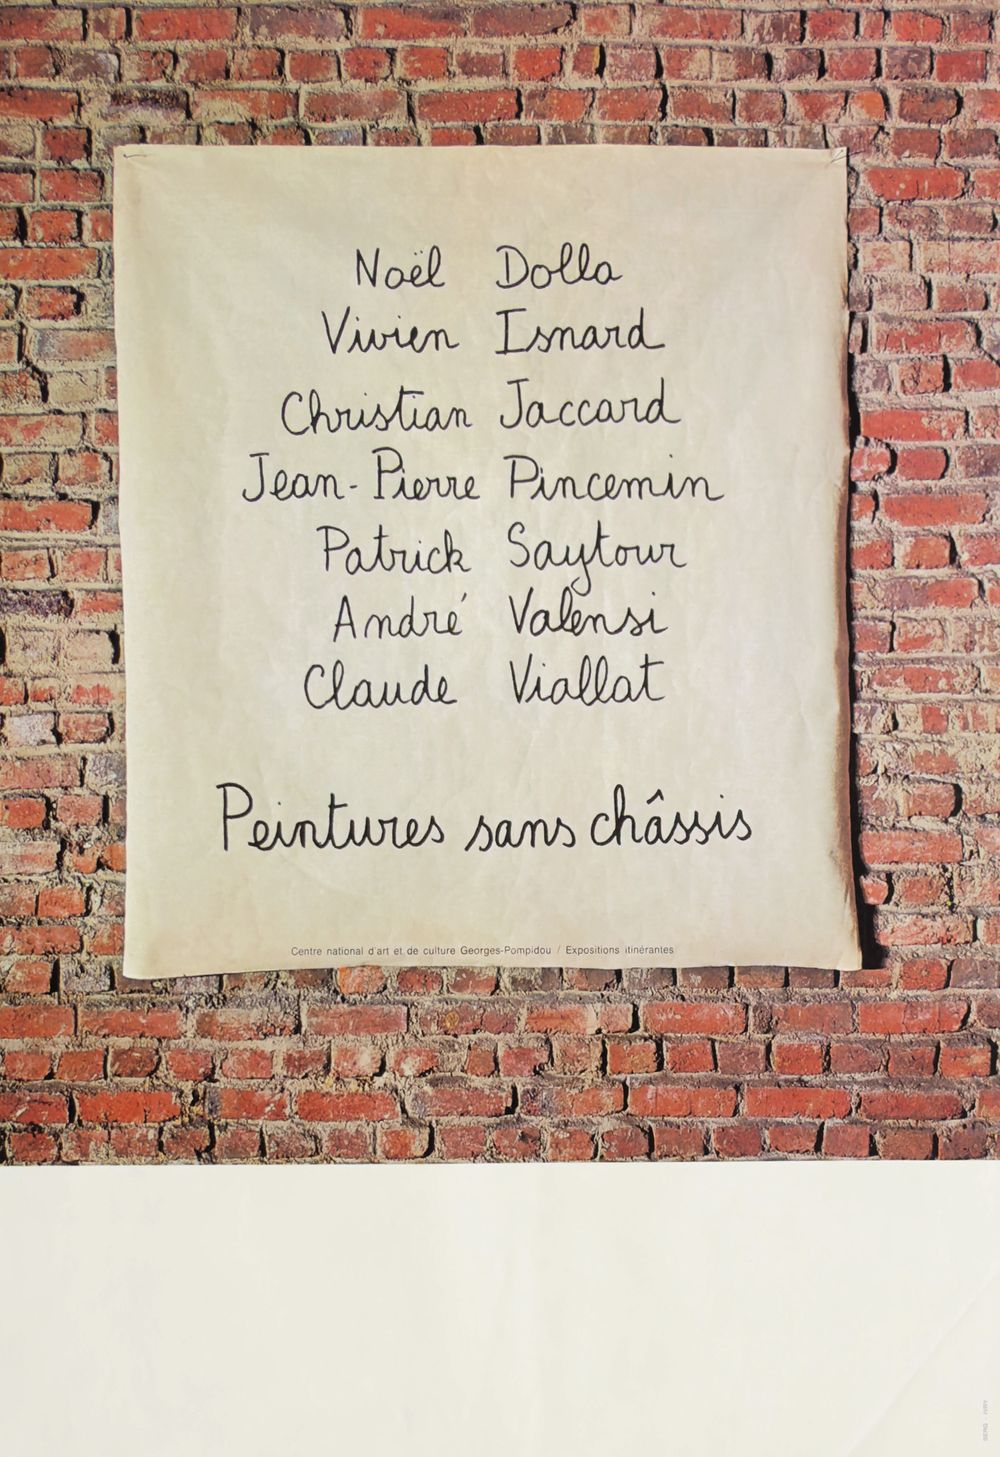 Noël Dolla
Vivien Isnard
Christian Jaccard
Jean-Pierre Pincemin
Patrick Saytour
André Valensi
Claude Viallat
Peintures sans châssis
Centre national d'art et de culture Georges-Pompidou / Expositions itinérantes